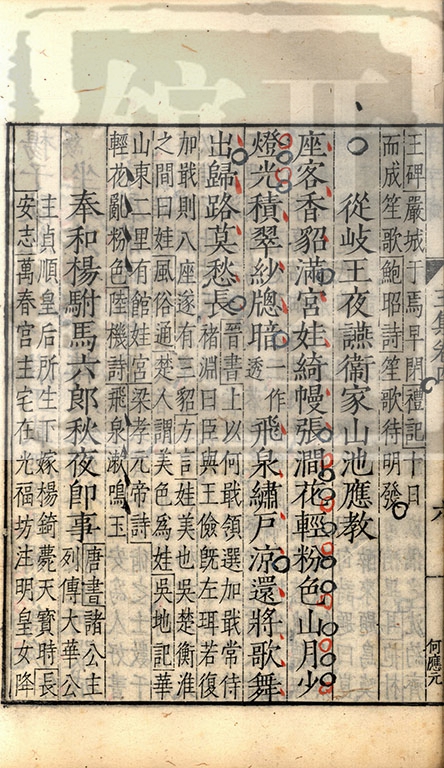 王碑嚴城于馬早閉禮記十日
而成笙歌鮑昭詩笙歌待明發
從岐王夜讌衛家山池應教
座客香貂滿宮娃綺幔張澗花輕粉色山月少
燈光積翠紗牕暗一作透飛泉繡戶涼還將歌舞
出歸路莫愁長晉書褚淵曰臣與王儉既左珥若復
上以何戢領選加戢常侍
加戢則八座遂有三貂方言娃美也吳楚衡淮
之間曰娃風俗通楚人謂美色爲娃吳地記華
山東二里有館娃宮梁孝元帝詩
輕花亂粉色陸機詩飛泉漱鳴玉
奉和楊駙馬六郎秋夜卽事
唐書諸公主
列傳大華公
主貞順皇后所生下嫁楊錡薨天寶時長
安志萬春宮主宅在光福坊注明皇女降
六
何應元